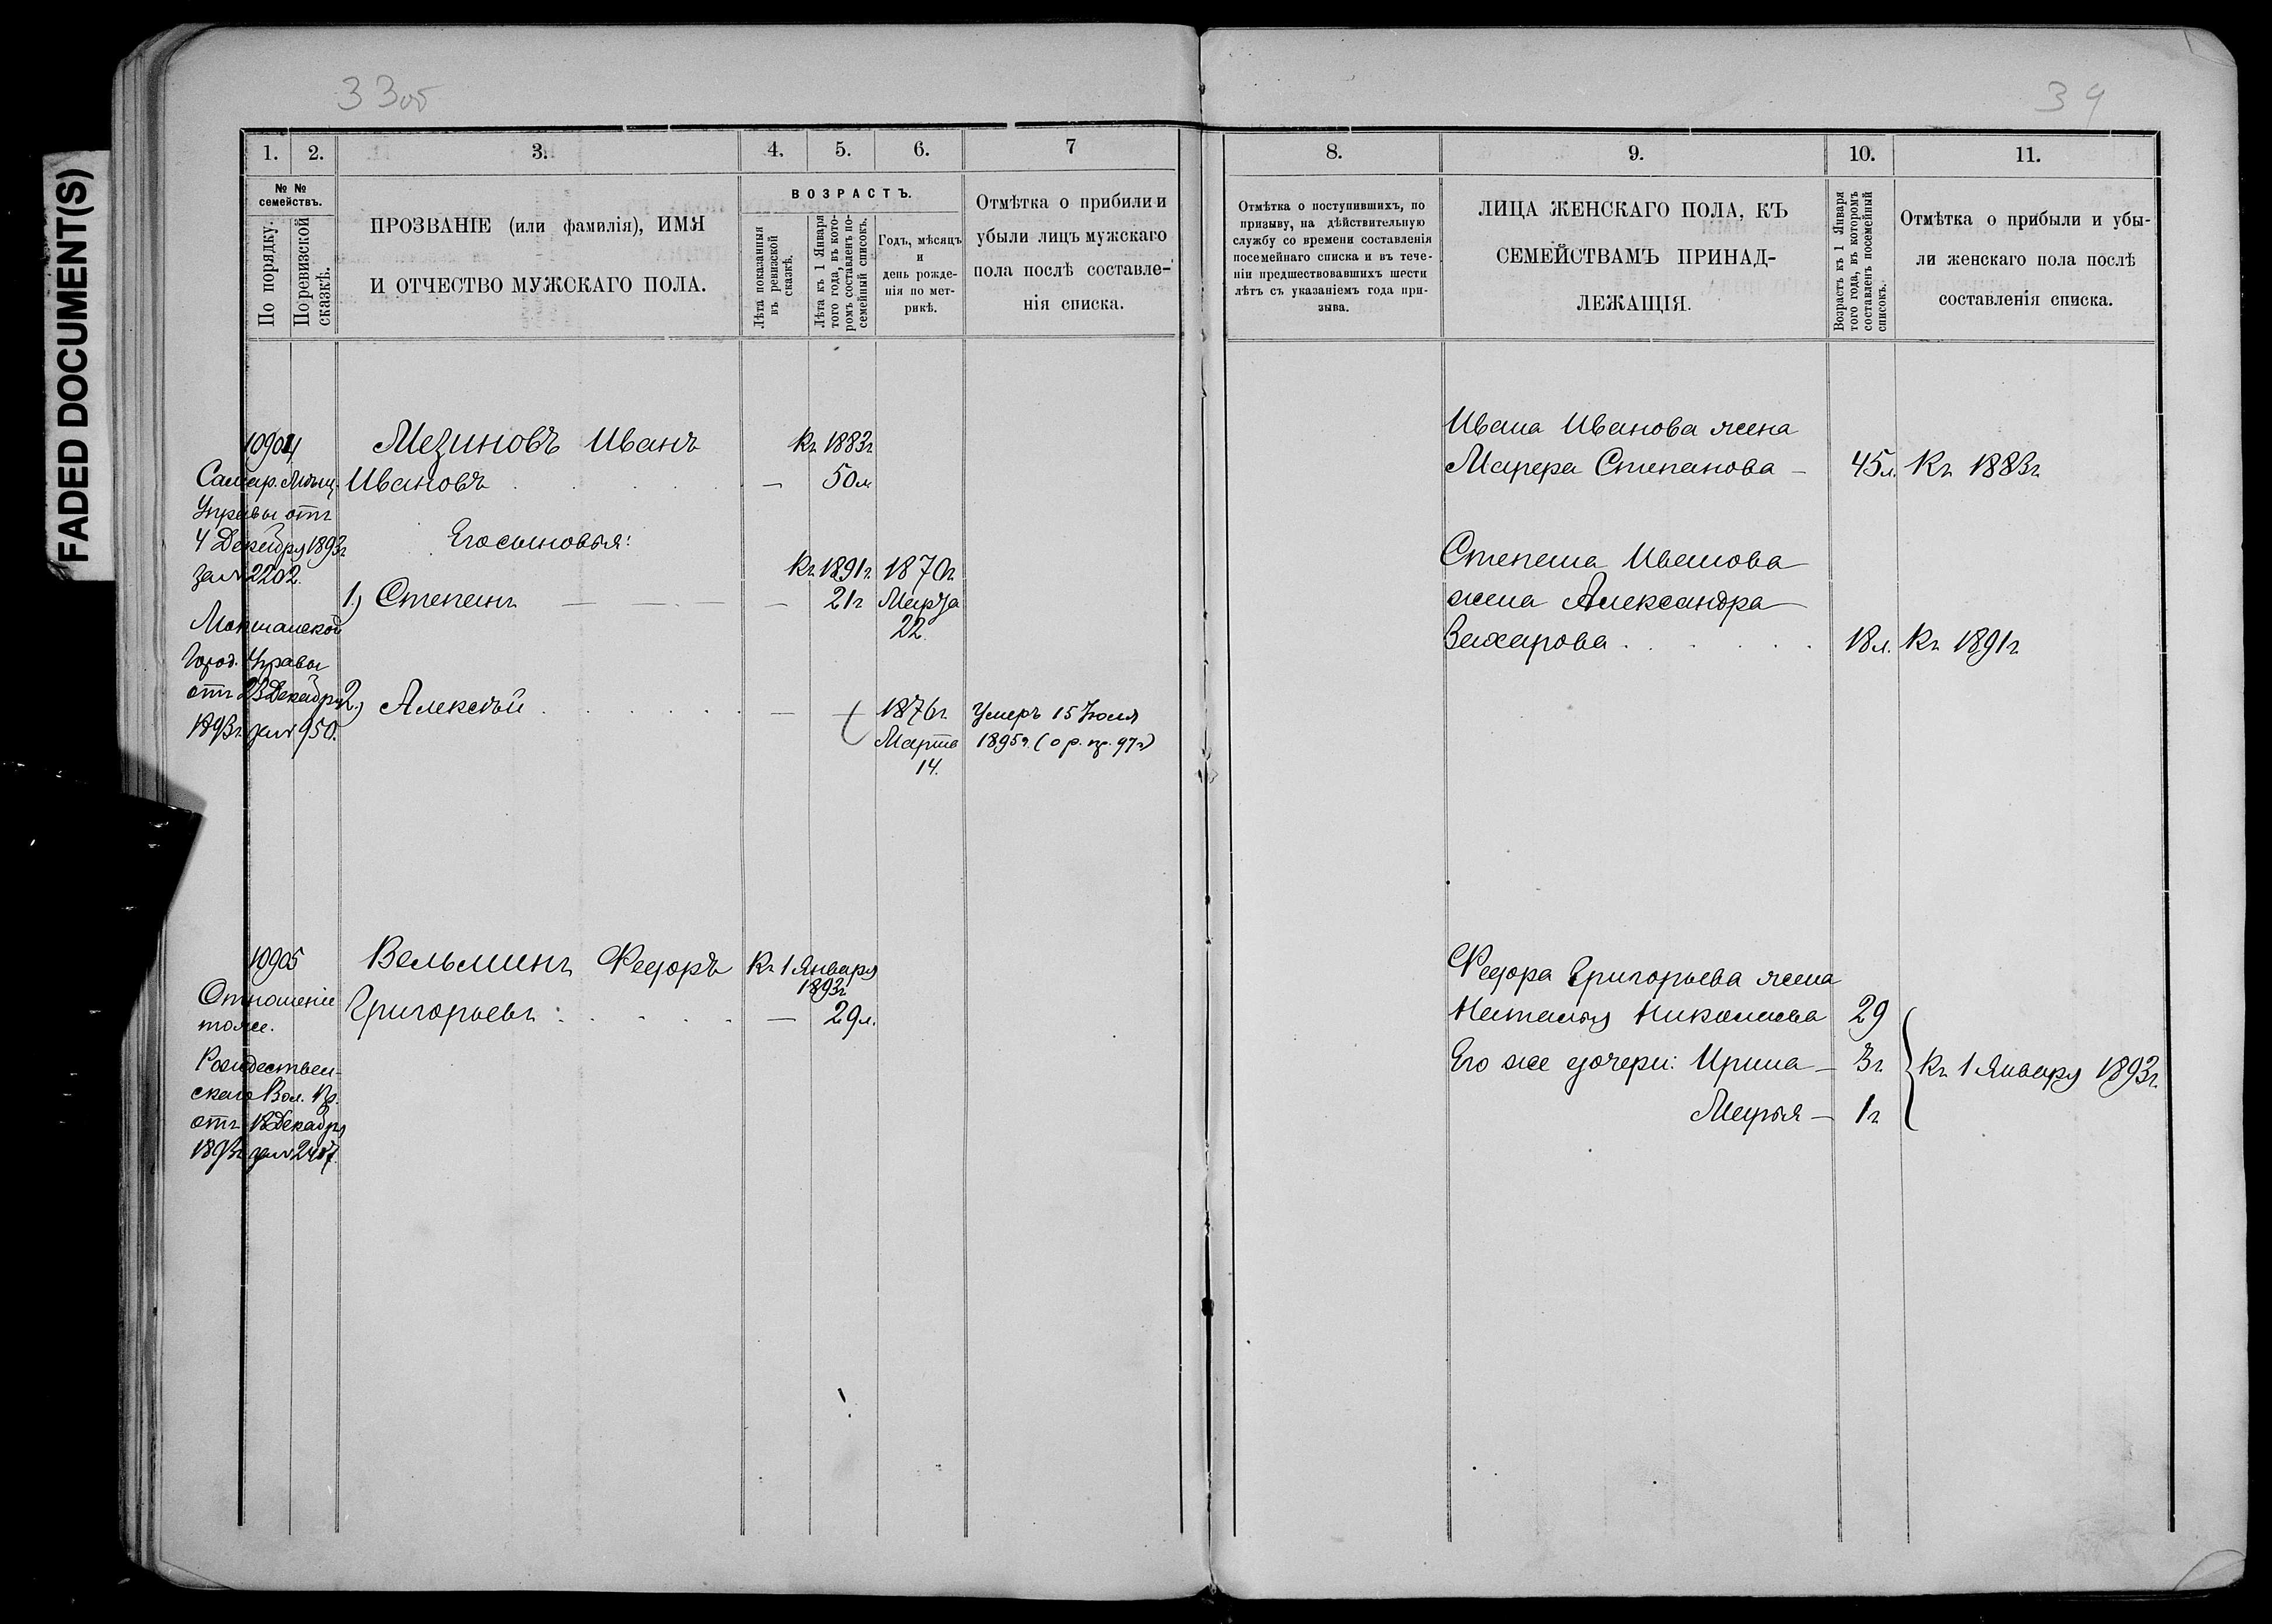 FADED DOCUMENT(S)
33об
1.
2.
3.
4.
5.
6.
7
№ №
семействъ.
По порядку.
По ревизской
сказкѣ.
ПРОЗВАНІЕ (или фамилія), ИМЯ
И ОТЧЕСТВО МУЖСКАГО ПОЛА.
ВОЗРАСТЪ.
Лѣта показанныя
въ ревизской
сказкѣ.
Лѣта къ 1 Января
того года, въ кото-
ромъ составленъ по-
семейный списокъ.
Годъ, мѣсяцъ
и
день рожде-
нія по мет-
рикѣ.
Отмѣтка о прибыли и
убыли лицъ мужскаго
пола послѣ составле-
нія списка.
10904
Самар. Мѣщ.
Управы отъ
4 Декабря 1893г
за № 2202.
Мокшанской
Город. Управы
отъ 23 Декабря
1893г. за № 950.
Мезиновъ Иванъ
Ивановъ
Къ 1883г
50л
Его сыновья:
1.) Степанъ
Къ 1891г.
21г
1870г
Марта
22.
2.) Алексѣй
1876г.
Марта
14.
Умеръ 15 Іюля
1895г. (о р. пр. 97г)
10905
Отношеніе
тоже.
Рождествен-
скаго Вол. Пр.
отъ 18 Декабря
1893г за №
Вельминъ Федоръ
Григорьевъ
Къ 1 Января
1893г
29л.
34
8.
9.
10.
11.
Отмѣтка о поступившихъ, по
призыву, на дѣйствительную
службу со времени составленія
посемейнаго списка и въ тече-
ніи предшествовавшихъ шести
лѣтъ съ указаніемъ года при-
зыва.
ЛИЦА ЖЕНСКАГО ПОЛА, КЪ
СЕМЕЙСТВАМЪ ПРИНАД-
ЛЕЖАЩІЯ.
Возрастъ къ 1 Января
того года, въ которомъ
составленъ посемейный
списокъ.
Отмѣтка о прибыли и убы-
ли женскаго пола послѣ
составленія списка.
Ивана Иванова жена
Марфа Степанова – 45л. Къ 1883г
Степана Иванова
жена Александра
Захарова 18л. Къ 1891г
Федора Григорьева жена
Наталья Николаева 29
Его же дочери: Ирина – 3г
Марья – 1г
Къ 1 Января 1893г.